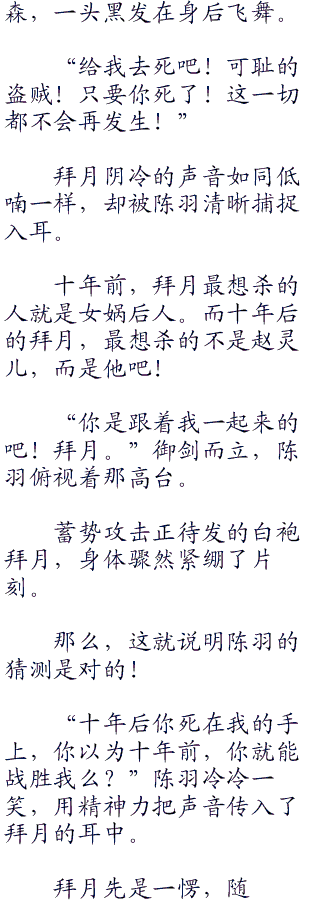 森，一头黑发在身后飞舞。
“给我去死吧！可耻的
盗贼！只要你死了！这一切
都不会再发生！”
拜月阴冷的声音如同低
喃一样，却被陈羽清晰捕捉
入耳。
十年前，拜月最想杀的
人就是女娲后人。而十年后
的拜月，最想杀的不是赵灵
儿，而是他吧！
“你是跟着我一起来的
吧！拜月。”御剑而立，陈
羽俯视着那高台。
蓄势攻击正待发的白袍
拜月，身体骤然紧绷了片
刻。
那么，这就说明陈羽的
猜测是对的！
“十年后你死在我的手
上，你以为十年前，你就能
战胜我么？”陈羽冷冷一
笑，用精神力把声音传入了
拜月的耳中。
拜月先是一愣，随